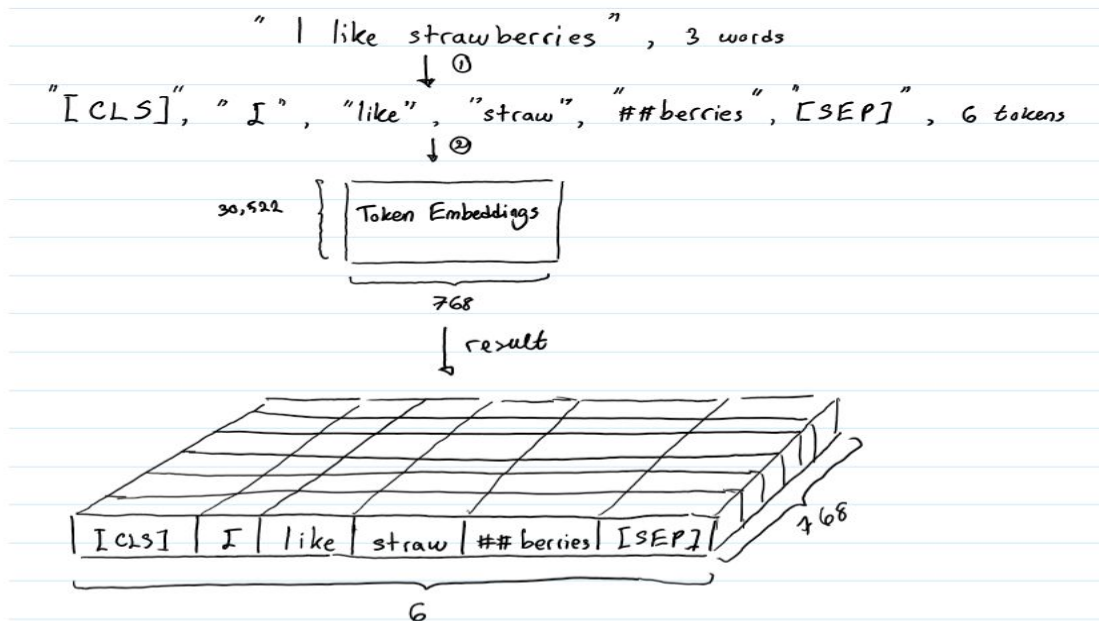 " I like strawberries " , 3 words
①
"[CLS]", "I", "like", "straw", "##berries", "[SEP]", 6 tokens
②
30,522
Token Embeddings
768
result
[CLS] I like straw ##berries [SEP]
768
6